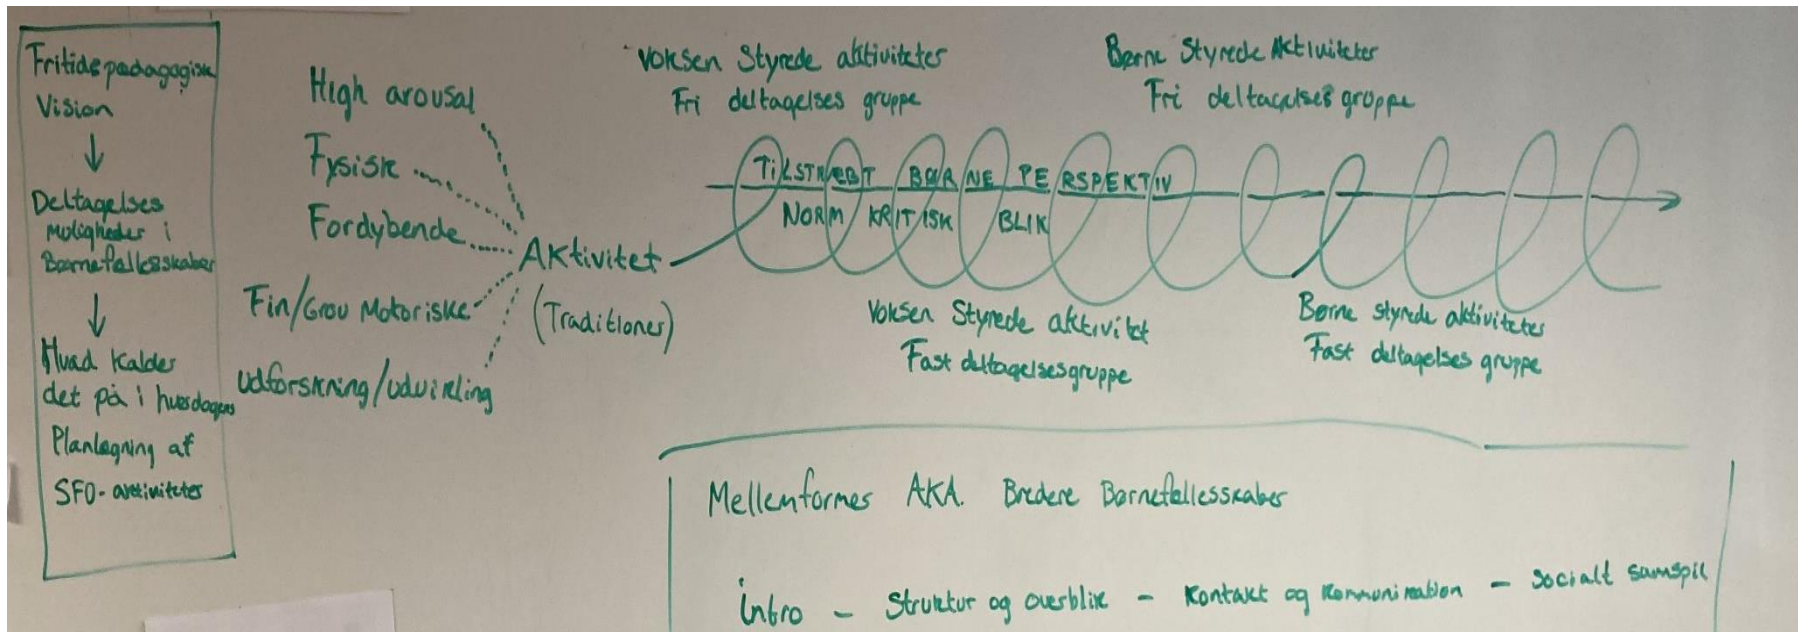 Fritidspædagogisk
Vision
Deltagelses
muligheder i
Børnefællesskaber
Hvad kalder
det på i hverdagens
Planlægning af
SFO-aktiviteter
High arousal
Fysisk
Fordybende
Fin/Grov Motoriske
Udforskning/udvikling
Aktivitet
(Traditioner)
Voksen Styrede aktiviteter
Fri deltagelses gruppe
Børne Styrede Aktiviteter
Fri deltagelses gruppe
TILSTRÆBT BØRNE PERSPEKTIV
NORM KRITISK BLIK
Voksen Styrede aktivitet
Fast deltagelsesgruppe
Børne styrede aktiviteter
Fast deltagelses gruppe
Mellemformer AKA. Bredere Børnefællesskaber
Intro - Struktur og overblik - Kontakt og Kommunikation - Socialt samspil